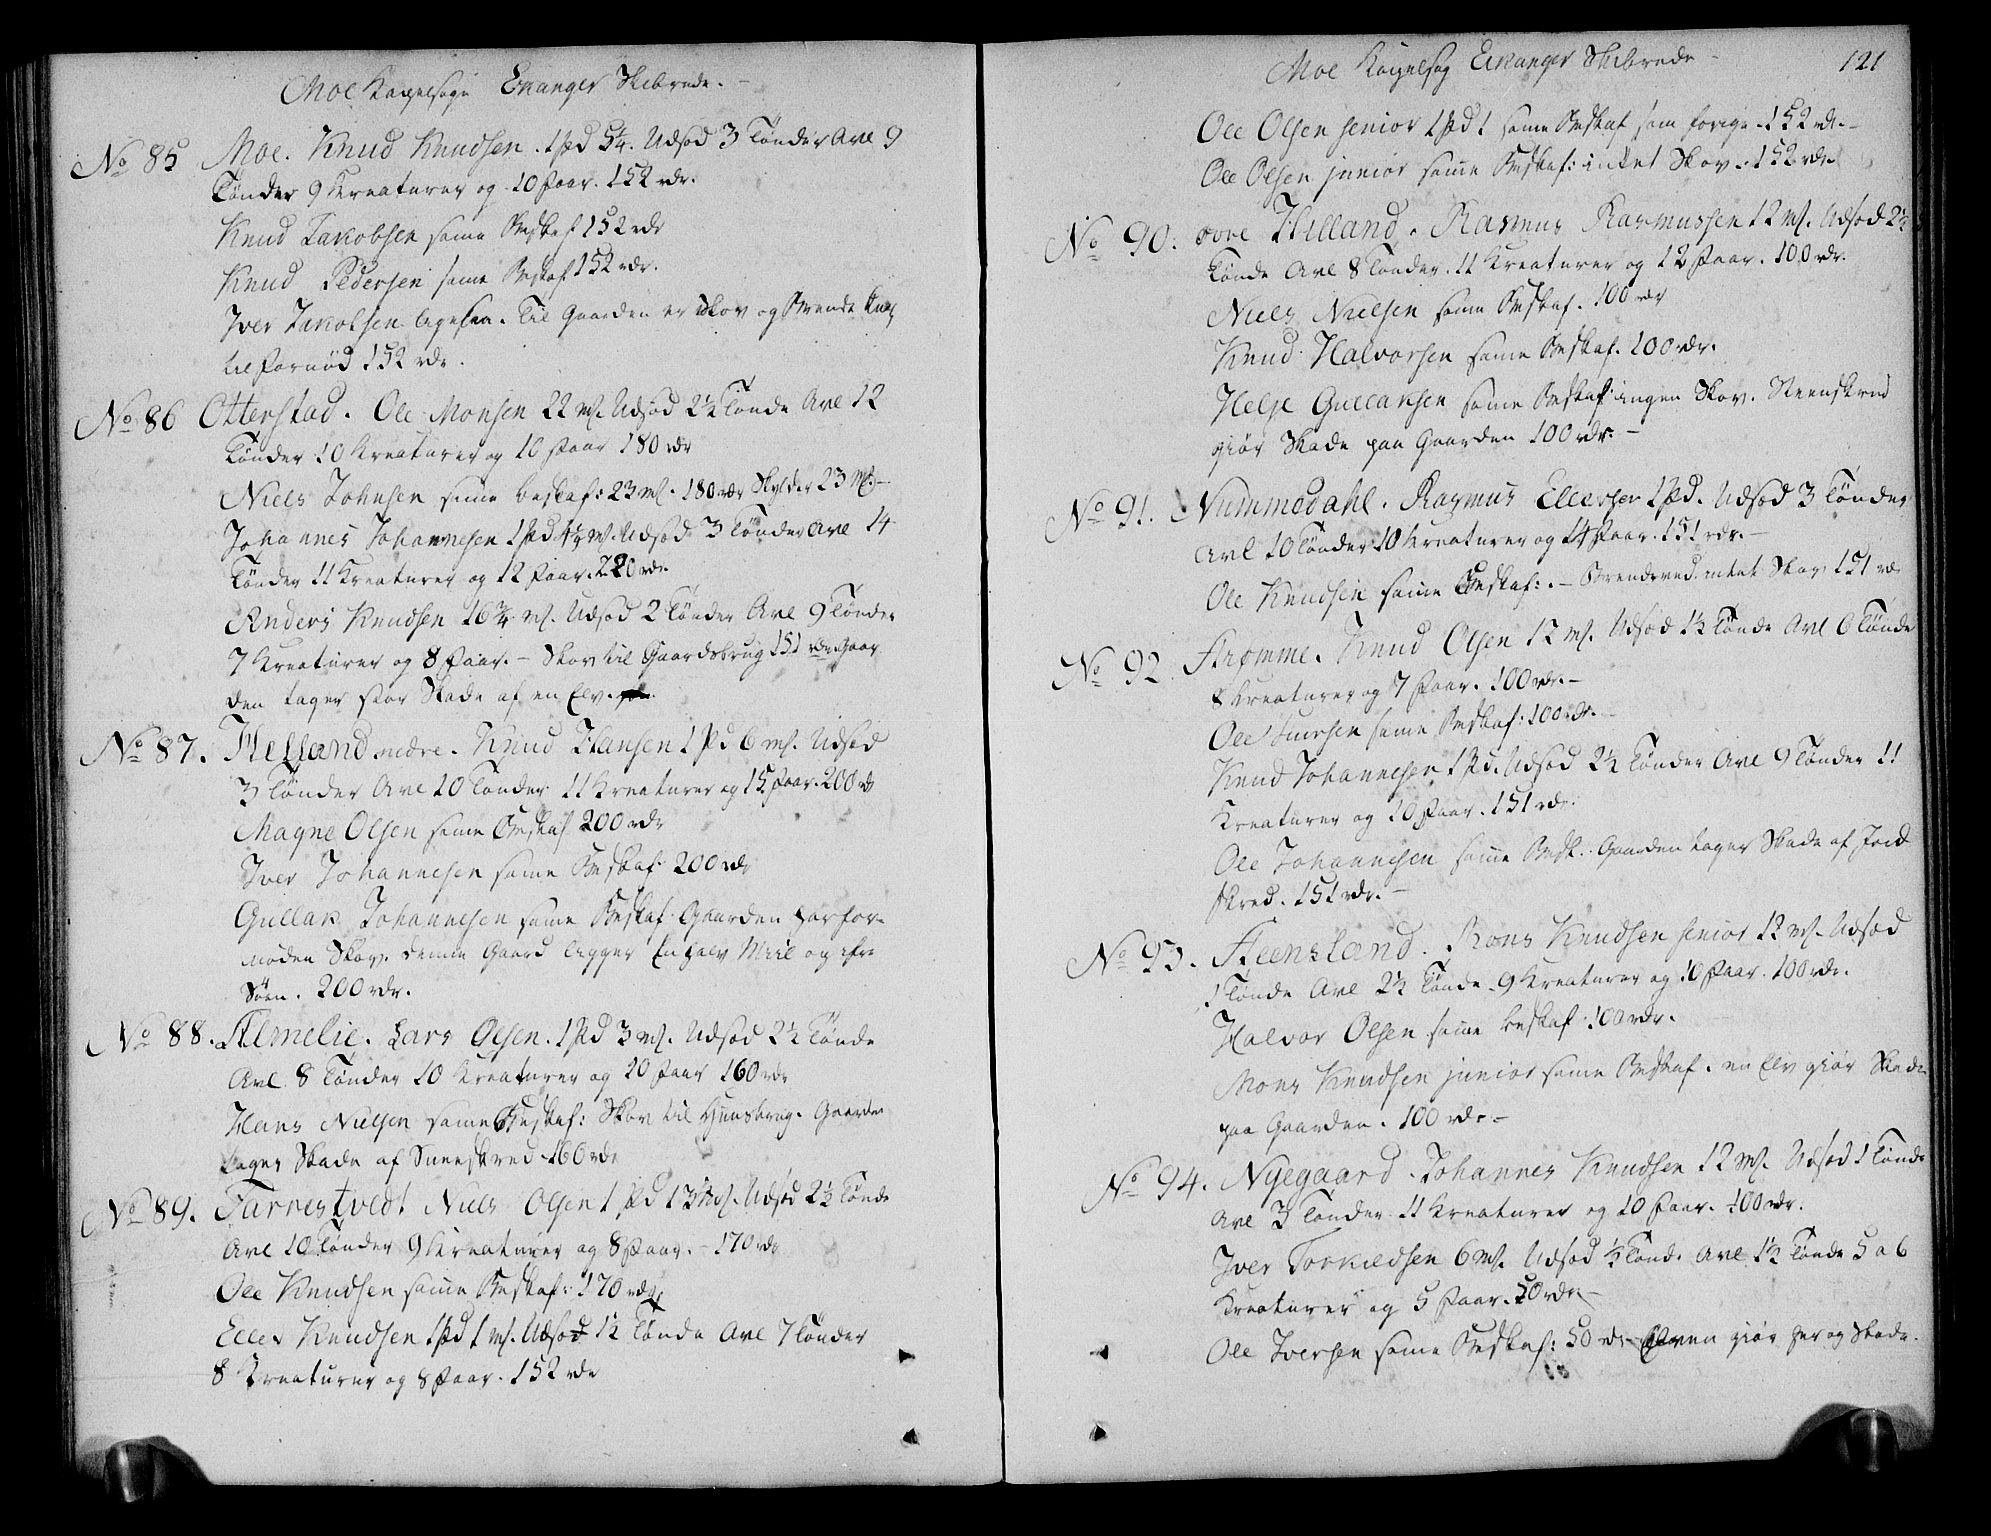 Moe Kapelsogn Eikanger Skibrede.
No 85 Moe. Knud Knudsen. 1 pd 5¼. Udsød 3 Tønder Avl 9
Tønder 9 Kreaturer og 10 Faar. 152 rdr.
Knud Jakobsen same Beskaf 152 rdr
Knud Pedersen same Beskaf 152 rdr.
Iver Jakobsen ligesaa. Til Gaarden er Skov og Brænde
til Fornød 152 rdr.
No 86 Otterstad. Ole Monsen 22 mk. Udsød 2½ Tønde Avl 12
Tønder 10 Kreaturer og 10 Faar 180 rdr
Niels Johnsen same beskaf: 23 mk. 180 rdr Skylder 23 Mk.
Johannes Johannesen 1 Pd 4½ mk. Udsød 3 Tønder Avl 14
Tønder 11 Kreaturer og 12 Faar. 220 rdr.
Anders Knudsen 16¾ mk. Udsød 2 Tønder Avl 9 Tønder
7 Kreaturer og 8 Faar. - Skov til Gaardsbrug 151 rdr Gaar
den tager stor Skade af en Elv.
No 87. Helland nedre. Knud Hansen 1 Pd 6 mk. Udsød
3 Tønder Avl 10 Tønder 11 Kreaturer og 15 Faar. 200 rdr
Magne Olsen same Beskaf 200 rdr
Iver Johannesen same Beskaf: 200 rdr
Gullak Johannesen same Beskaf Gaarden har for-
nøden Skov. denne Gaard ligger en halv Miil op fra
Søen. 200 rdr.
No 88. Almelie. Lars Olsen. 1 Pd 3 mk. Udsød 2½ Tønde
Avl 8 Tønder 10 Kreaturer og 10 Faar 160 rdr
Hans Nielsen same Beskaf: Skov til Huusbrug. Gaarden
tager Skade af Sneeskred 160 rdr
No 89. Farnestvedt Niels Olsen 1 Pd 13½ mk. Udsød 2½ Tønde
Avl 10 Tønder 9 Kreaturer og 8 Faar. - 170 rdr
Ole Knudsen same Beskaf: 170 rdr
Eller Knudsen 1 Pd 1 mk. Udsød 1½ Tønde Avl 7 Tønder
8 Kreaturer og 8 Faar. 152 rdr
Moe Kapelsog Eikanger Skibrede 121
Ole Olsen senior 1 Pd 1 same Beskaf som forige. 152 rdr.
Ole Olsen junior same Beskaf: intet Skov. 152 rdr
No 90. øvre Helland. Rasmus Rasmussen 12 mk. Udsød 2½
Tønde Avl 8 Tønder. 11 Kreaturer og 12 Faar. 100 rdr.
Niels Nielsen same Beskaf. 100 rdr
Knud Halvorsen same Beskaf. 100 rdr.
Helje Gullaksen same Beskaf ingen Skov. Steenskred
giør Skade paa Gaarden 100 rdr. -
No 91. Nummedahl. Rasmus Ellersen 1 Pd. Udsød 3 Tønder
Avl 10 Tønder 10 Kreaturer og 14 Faar. 151 rdr. -
Ole Knudsen same Beskaf: - Brendeved intet Skov 151 rd
No 92. Strømme. Knud Olsen 12 mk. Udsød 1½ Tønde Avl 6 Tønde
8 Kreaturer og 7 Faar. 100 rdr. -
Ole Iversen same Beskaf: 100 rdr.
Knud Johannesen 1 Pd. Udsød 2½ Tønder Avl 9 Tønder 11
Kreaturer og 10 Faar. 151 rdr.
Ole Johannesen same Besk. Gaarden tager Skade af Jord
skred. 151 rdr. -
No 93. Steensland. Mons Knudsen senior 12 mk. Udsød
1 Tønde Avl 2½ Tønde. 9 Kreaturer og 10 Faar. 100 rdr.
Halvor Olsen same beskaf 100 rdr.
Mons Knudsen junior same Beskaf. en Elv giør Skade
paa Gaarden. 100 rdr. -
No 94. Nyegaard. Johannes Knudsen 12 mk. Udsød 1 Tønde
Avl 3 Tønder 11 Kreaturer og 10 Faar. 100 rdr.
Iver Torkildsen 6 mk. Udsød ½ Tønde Avl 1½ Tønde 5 a 6
Kreaturer og 5 Faar. 50 rdr. -
Ole Iversen same Beskaf: 50 rdr - Elven giør her og Skade.